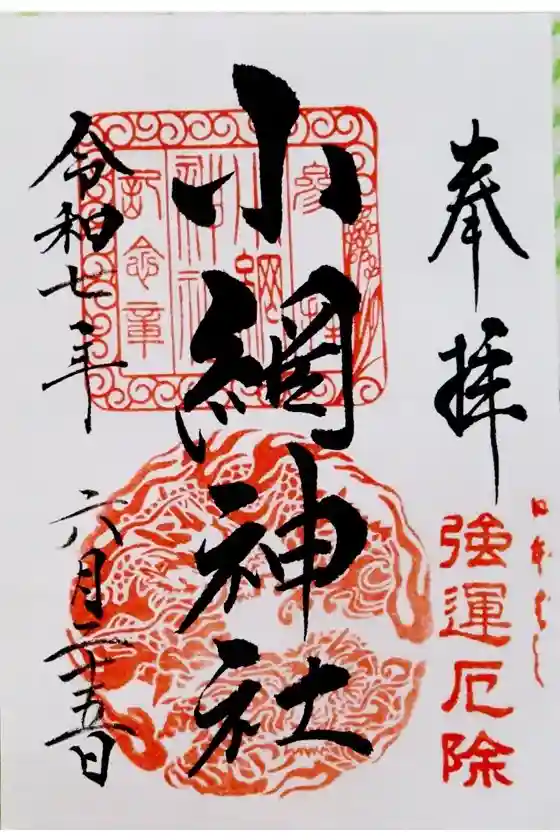 奉拝
日本ばし
強運厄除
小網神社
参拝
小網神社
記念章
令和七年 六月二十五日